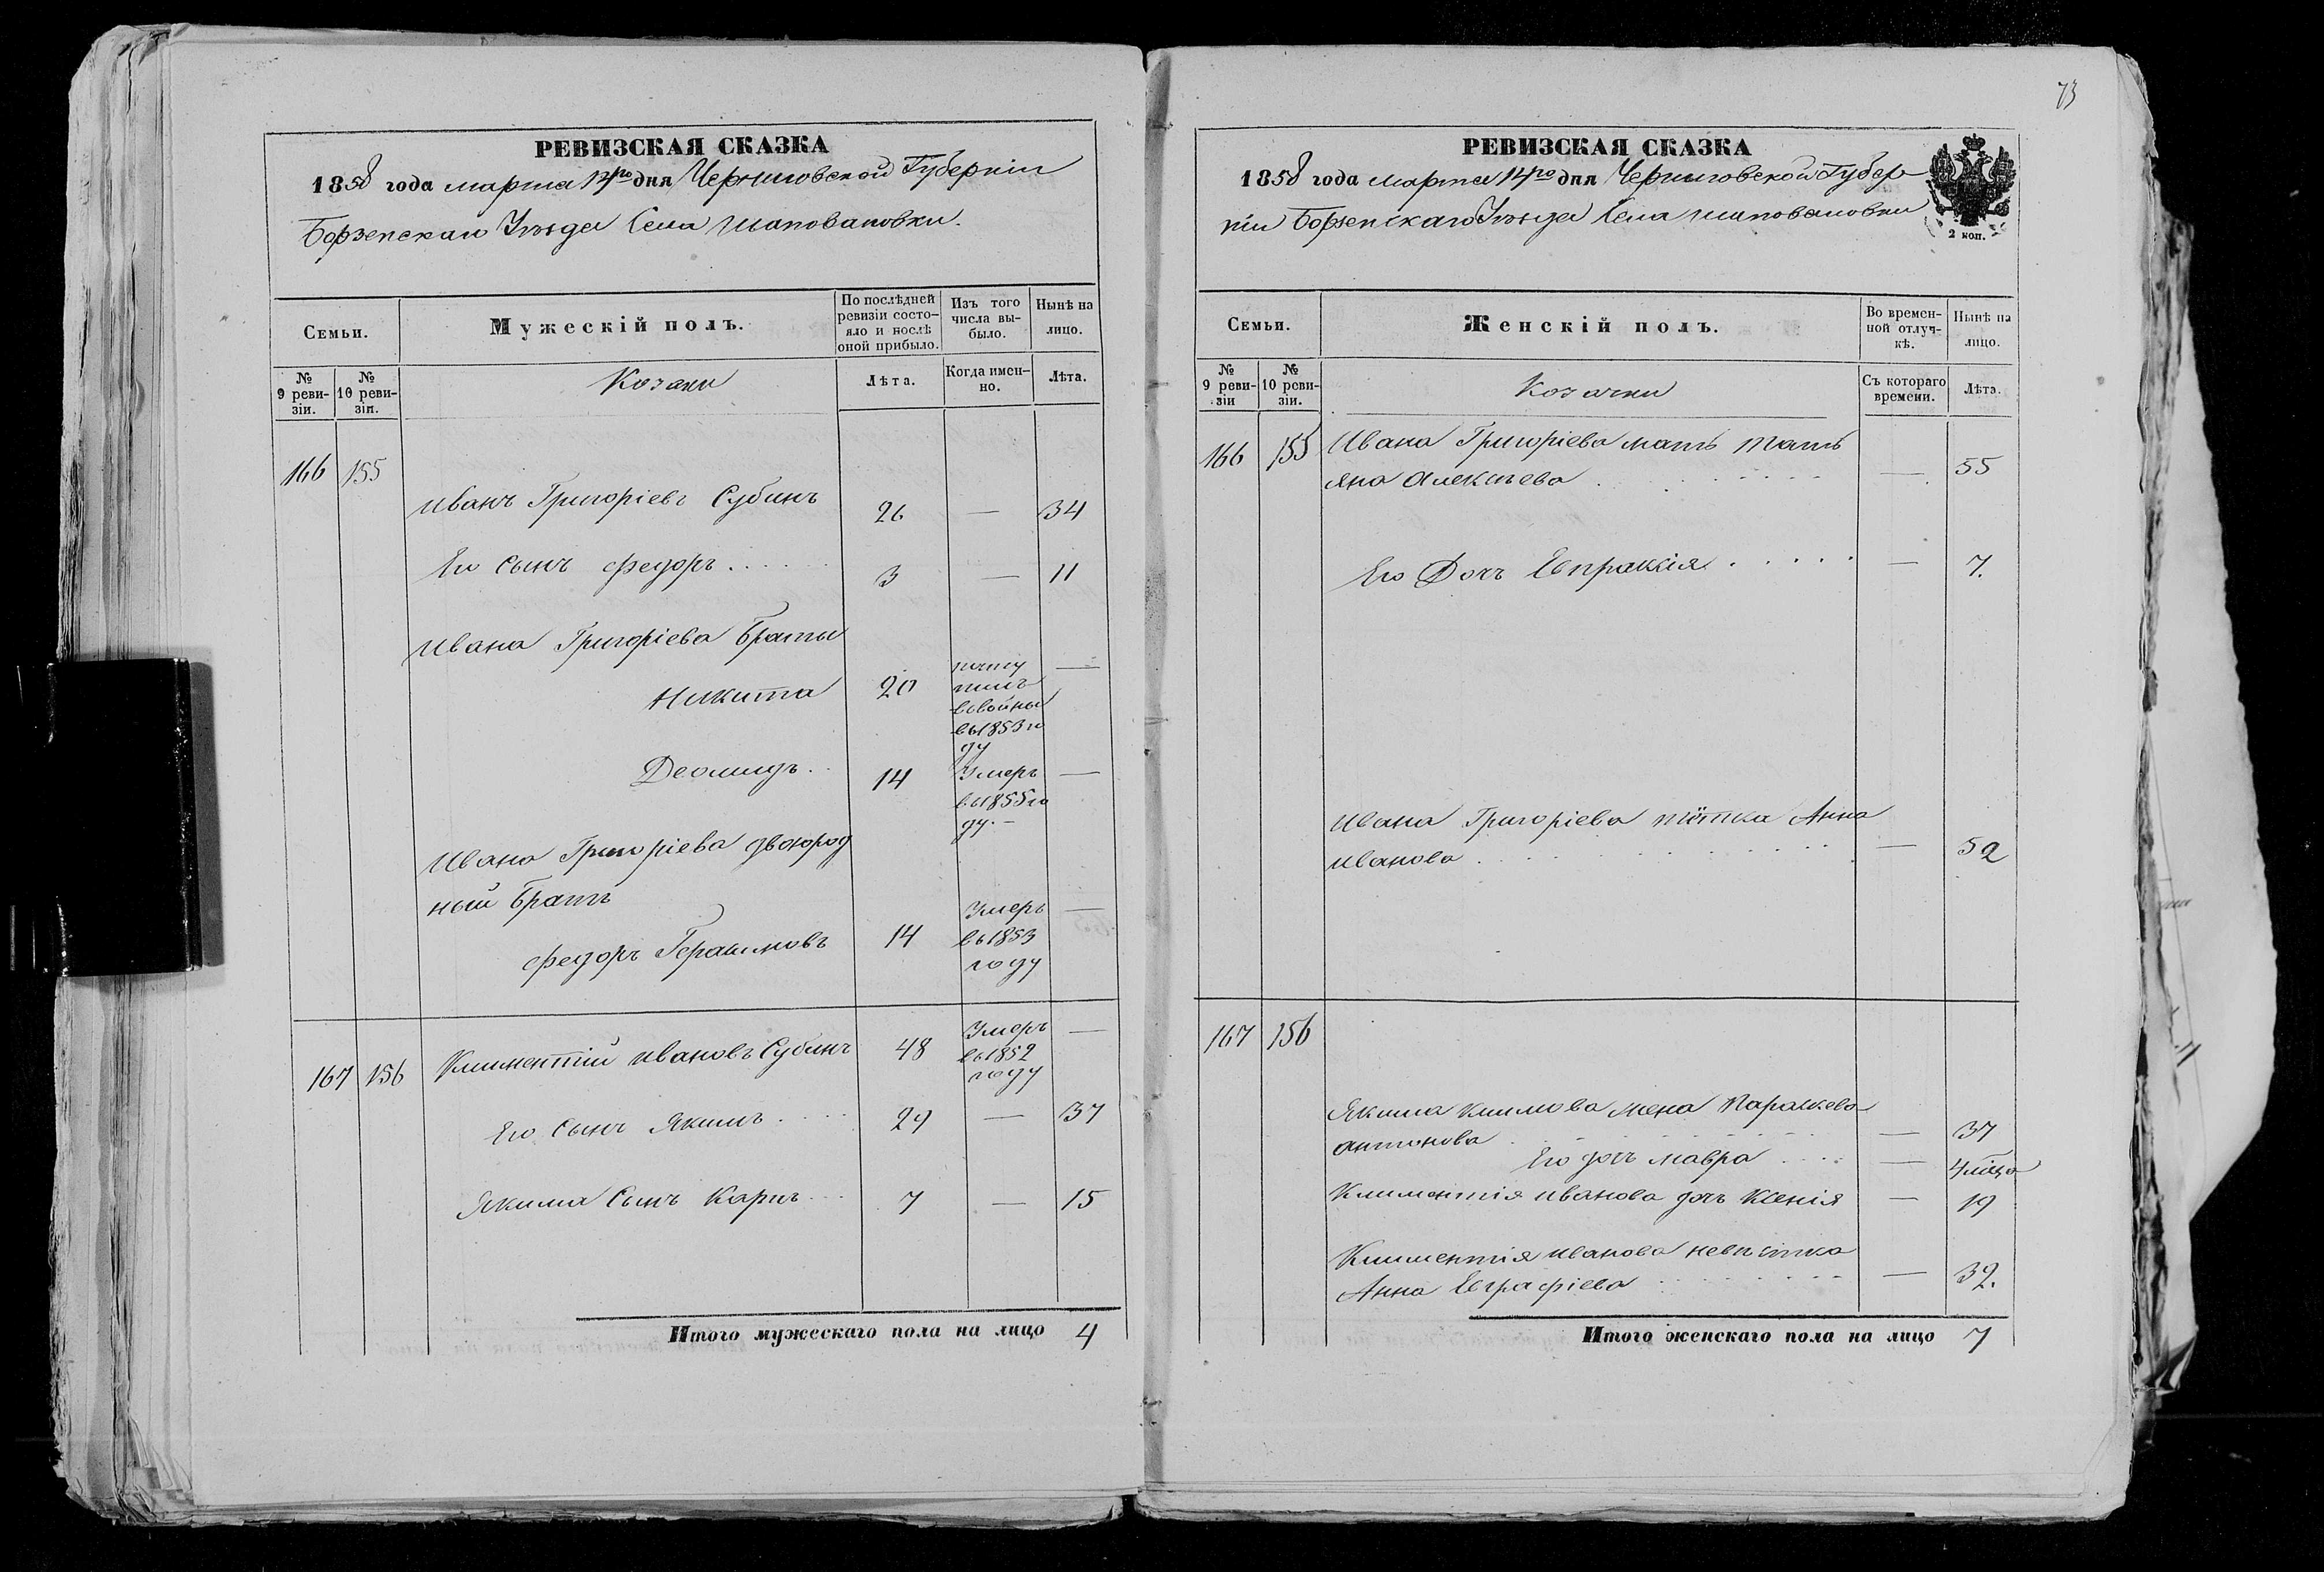 73
РЕВИЗСКАЯ СКАЗКА
1858 года марта 14го дня Черниговской Губерніи
Борзенскаго Уѣзда Села Шаповаловки.
Семьи.
Мужескій полъ.
По послѣдней ревизіи состо-
яло и послѣ оной прибыло.
Изъ того числа вы-
было.
Нынѣ на лицо.
№ 9 реви-
зіи.
№ 10 реви-
зіи.
Козаки
Лѣта.
Когда имен-
но.
Лѣта.
166 155
Иванъ Григоріевъ Субинъ 26 — 34
Его Сынъ Федоръ . . . . . 3 — 11
Ивана Григоріева Браты
Никита 20 —
въ 1853 го
ду
Деомидъ . . 14 Умеръ —
въ 1855 го
ду. —
Ивана Григоріева двоюрод
ный Братъ
Федоръ Герасимовъ 14 Умеръ —
въ 1853
году
167 156 Климентій Ивановъ Субинъ 48 Умеръ —
въ 1852
году
Его Сынъ Якимъ . . . . 29 — 37
Якима Сынъ Карпъ . . . 7 — 15
Итого мужескаго пола на лицо 4
РЕВИЗСКАЯ СКАЗКА
1858 года марта 14го дня Черниговской Губер
ніи Борзенскаго Уѣзда Села Шаповаловки
2 коп.
Семьи.
Женскій полъ.
Во времен-
ной отлуч-
кѣ.
Нынѣ на лицо.
№ 9 реви-
зіи
№ 10 реви-
зіи.
Козачки
Съ котораго времени.
Лѣта.
166 155 Ивана Григоріева мать Тать
яна Алексѣева . . . . . . — 55
Его Дочь Евпраксія . . . . . — 7.
Ивана Григоріева тётка Анна
Иванова . . . . . . . . — 52
167 156
Якима Климова жена Параскева
Антонова . . . . . . . — 37
Его дочь Мавра . . . . — 4
Климентія Иванова дочь Ксенія — 19
Климентія Иванова невѣстка
Анна Евграфіева . . . . . . — 32.
Итого женскаго пола на лицо 7